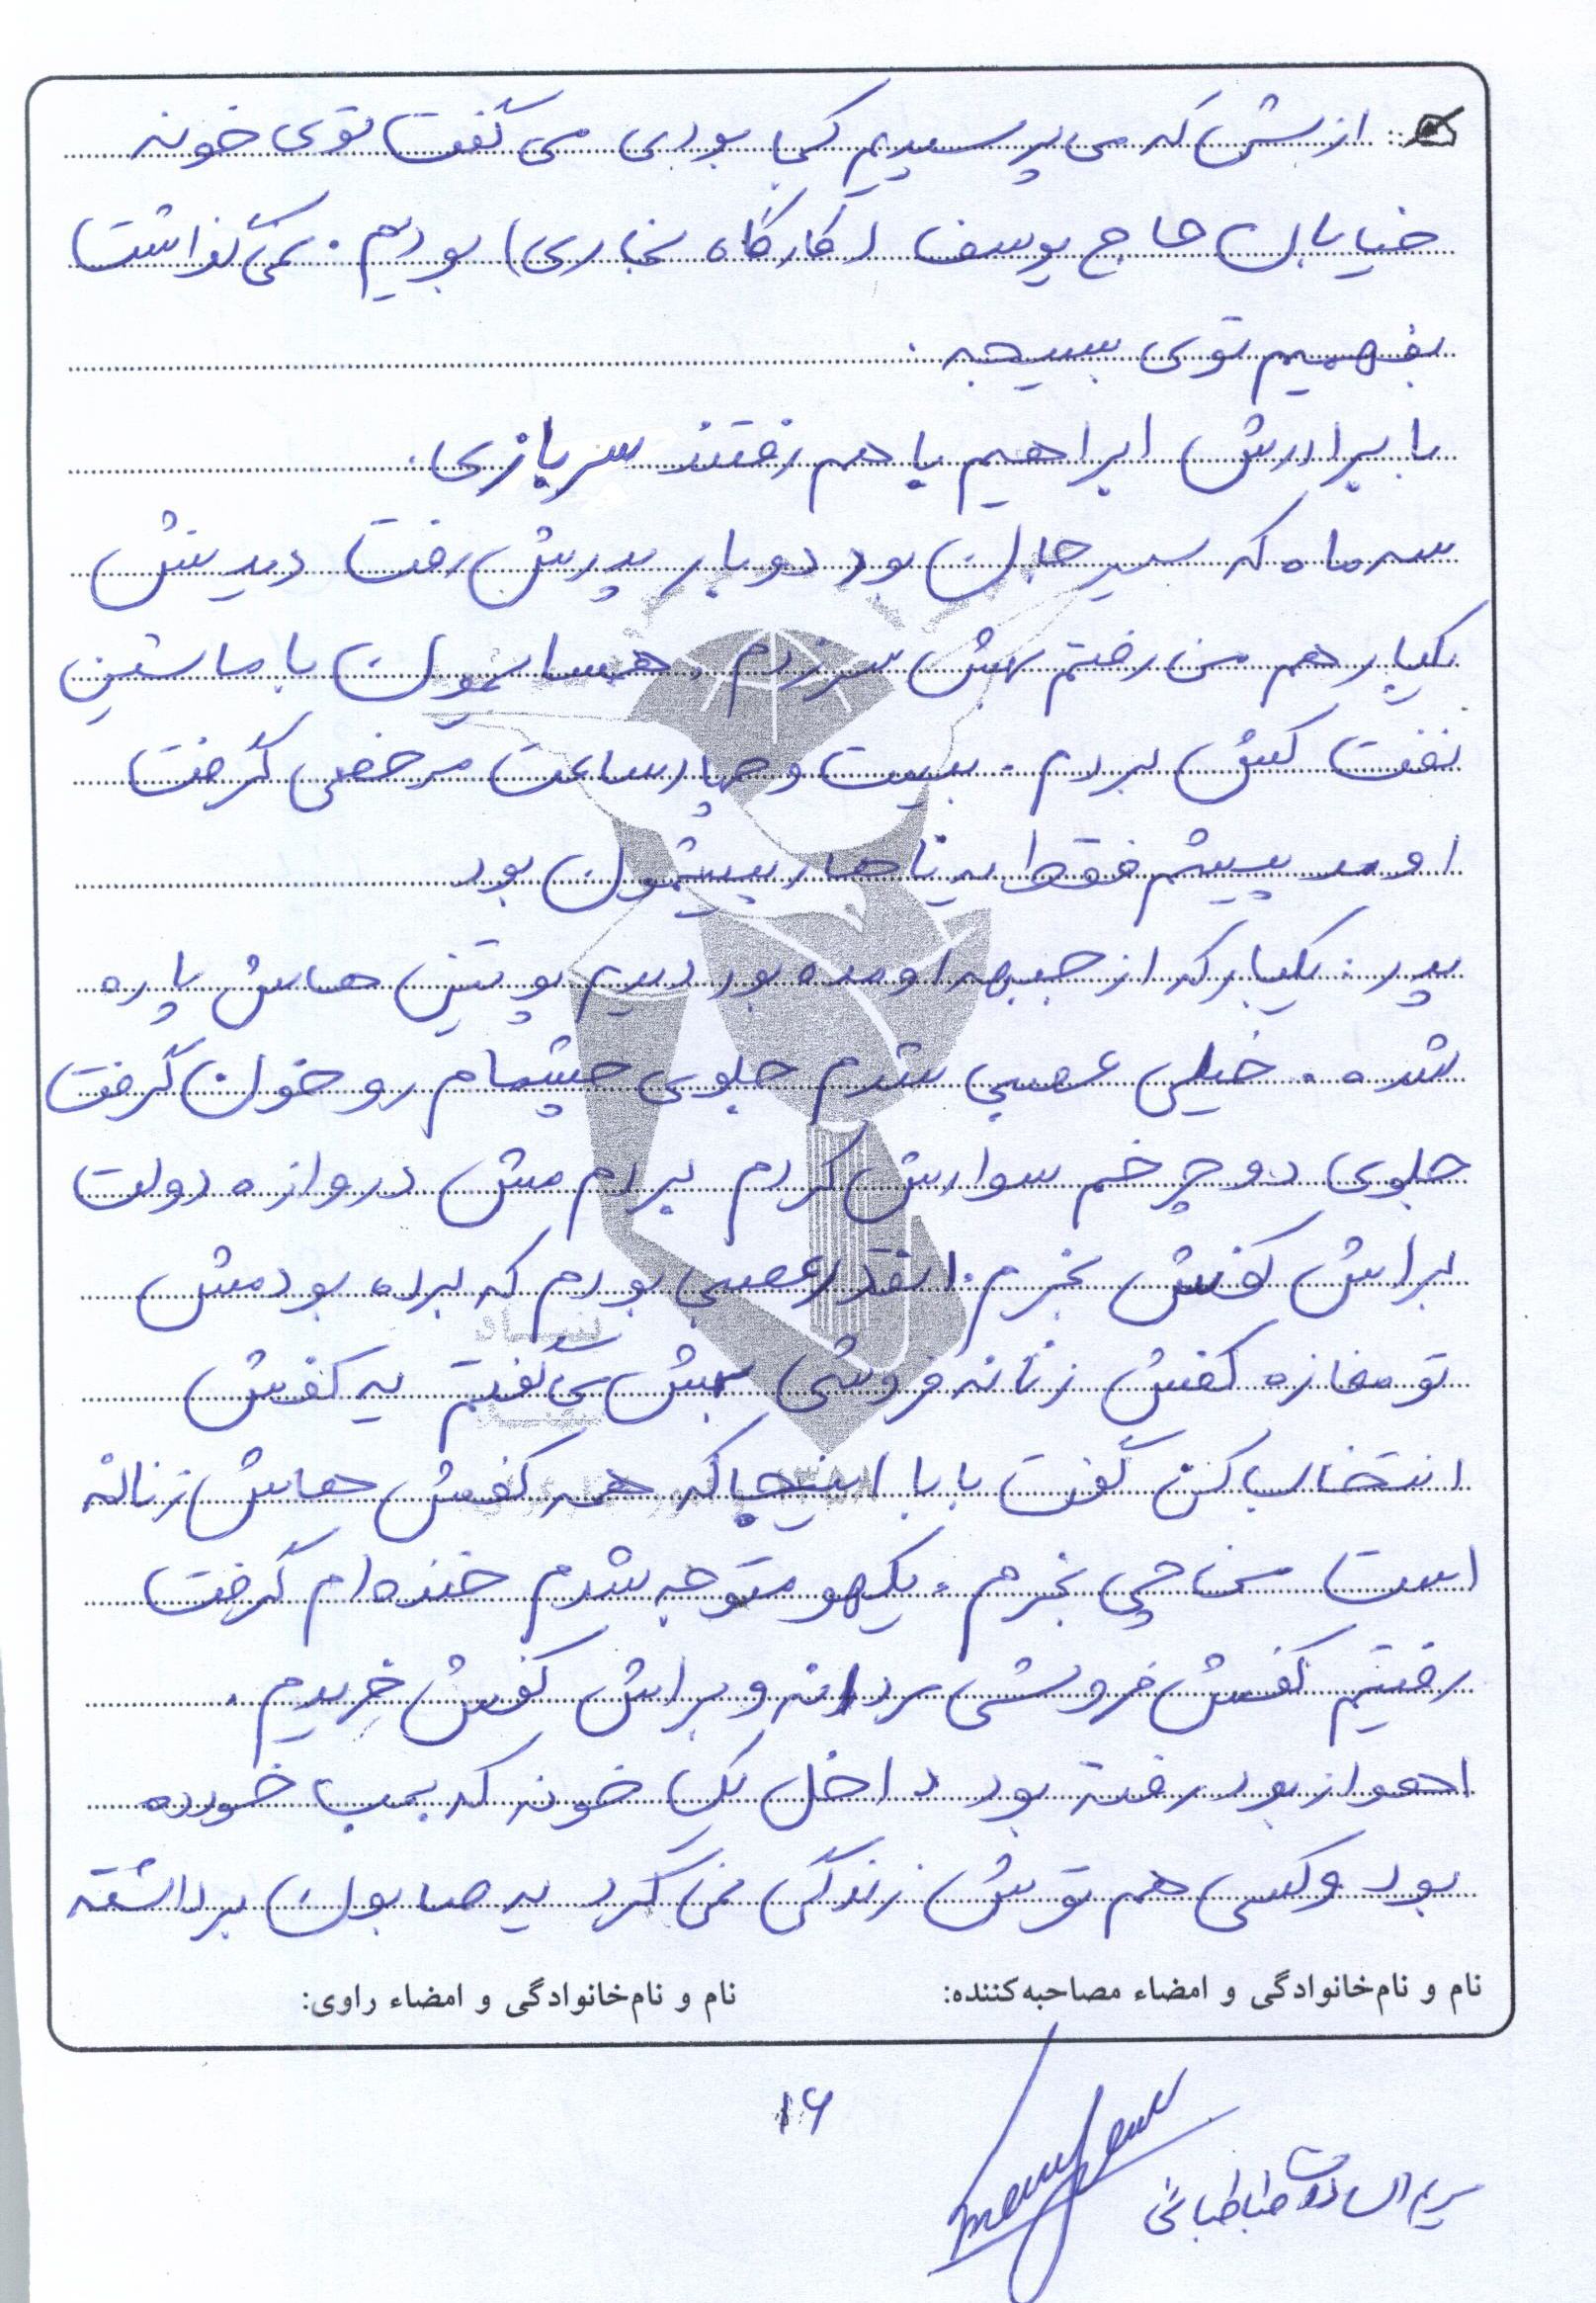 ازبش که می پرسیدیم کجا بودی می گفت توی خونه
خیابان حاج یوسف (کارگاه نجاری) بودیم. نمی گذاشت
بفهمیم توی بسیجه.
با برادرش ابراهیم با هم رفتند سربازی.
سه ماه که سیرجان بود دوبار پدرش رفت دیدنش
یکبار هم من رفتم بهش سر زدم. همسایمون با ماشین
نفت کش بردم. بیست و چهار ساعت مرخصی گرفت
اومد پیشم فقط یه ناهار پیشمون بود
پدر: یکبار که از جبهه اومده بود دیدم پوتین هاش پاره
شده. خیلی عصبی شدم جلوی چشمام رو خون گرفت
جلوی دوچرخم سوارش کردم بردمش دروازه دولت
براش کفش بخرم. انقدر عصبی بودم که برده بودمش
تو مغازه کفش زنانه فروشی بهش می گفتم یه کفش
انتخاب کن گفت بابا اینجا که همه کفش هاش زنانه
است من چی بخرم. یکهو متوجه شدم خنده ام گرفت
رفتیم کفش فروشی مردانه و براش کفش خریدم.
اهواز بود رفته بود داخل یک خونه که بمب خورده
بود و کسی هم توش زندگی نمی کرد یه صابون برداشته
نام و نام خانوادگی و امضاء مصاحبه کننده: نام و نام خانوادگی و امضاء راوی:
۱۶
مریم السادات طباطبائی